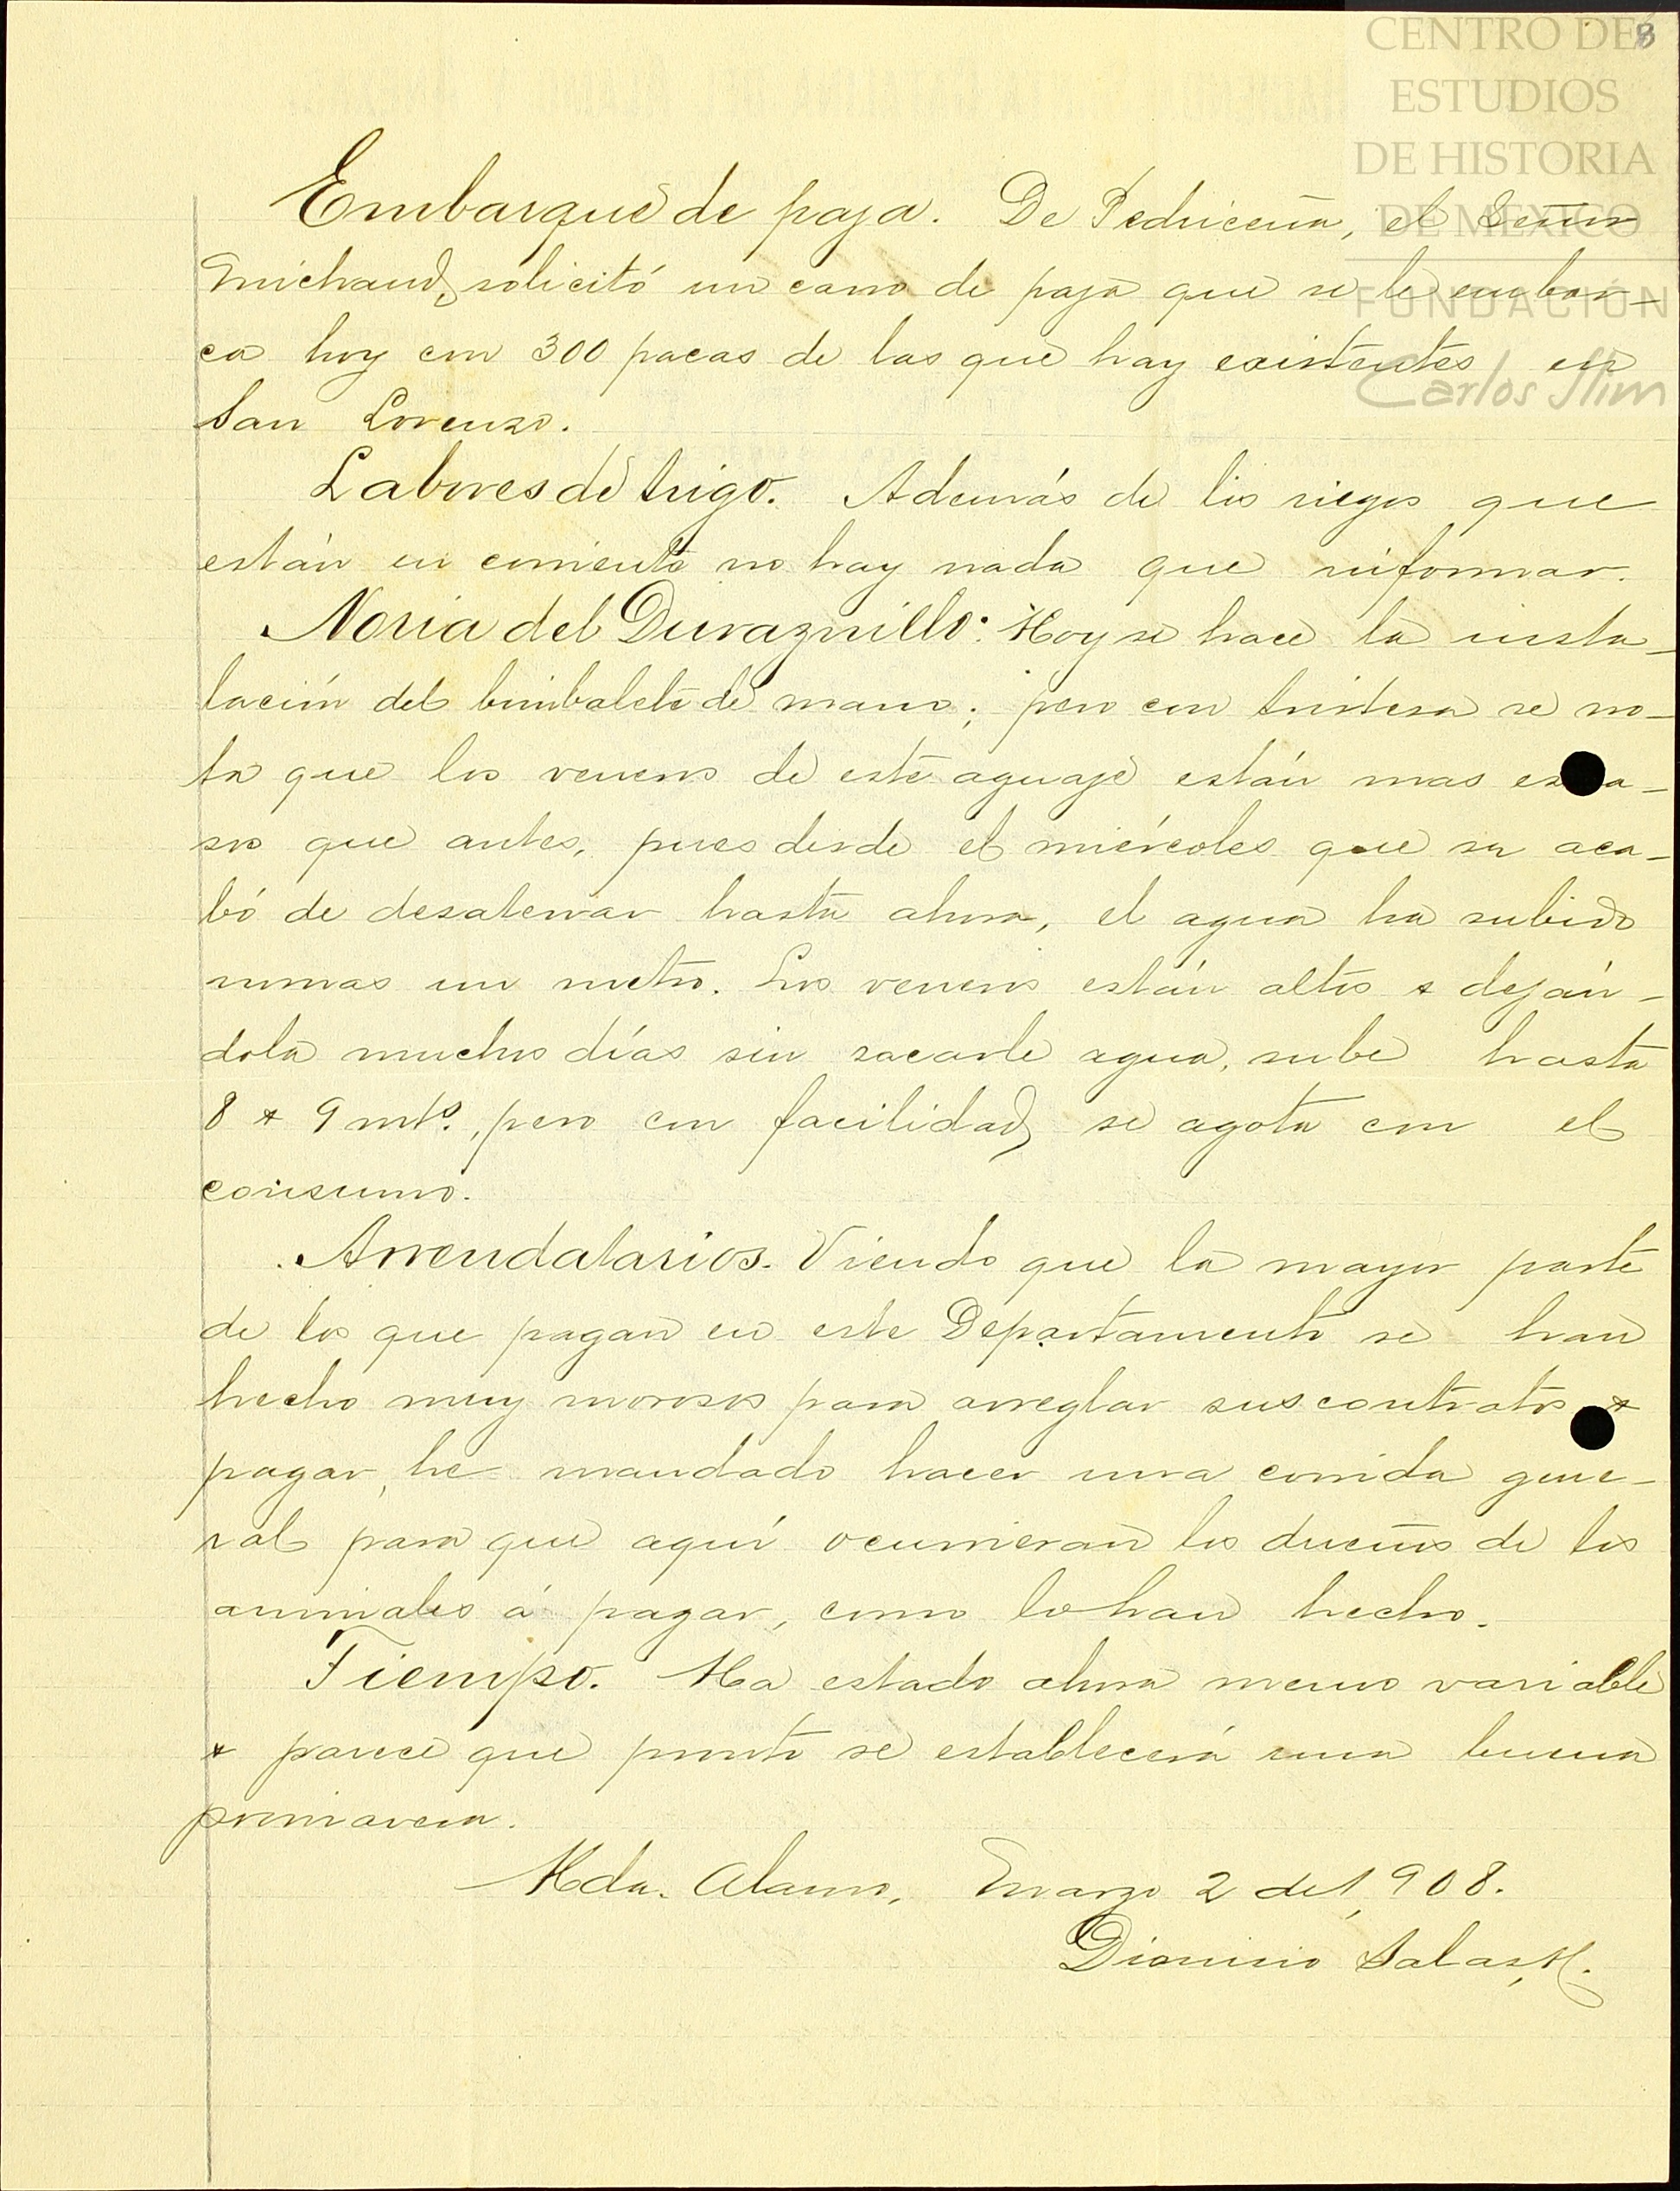 CENTRO DE
ESTUDIOS
DE HISTORIA
DE MÉXICO
FUNDACIÓN
Carlos Slim
8
Embarque de paja. De Pedriceña, el Señor
Michaud, solicitó un carro de paja que se le embar-
ca hoy con 300 pacas de las que hay existentes en
San Lorenzo.
Labores de trigo. Además de los riegos que
están en corriente no hay nada que informar.
Noria del Duraznillo: Hoy se hace la insta-
lación del bimbalete de mano; pero con tristesa se no-
ta que los veneros de este aguaje están mas esca-
sos que antes, pues desde el miércoles que se aca-
bó de desaterrar hasta ahora, el agua ha subido
nomas un metro. Los veneros están altos & deján-
dola muchos días sin sacarle agua, sube hasta
8 & 9 mts., pero con facilidad se agota con el
consumo.
Arrendatarios. Viendo que la mayor parte
de los que pagan en este Departamento se han
hecho muy morosos para arreglar sus contratos &
pagar, he mandado hacer una corrida gene-
ral para que aquí ocurrieran los dueños de los
animales á pagar, como lo han hecho.
Tiempo. Ha estado ahora menos variable
& parece que pronto se establecerá una buena
primavera.
Hda. Alamo, Marzo 2 de 1,908.
Dionisio Salas, H.